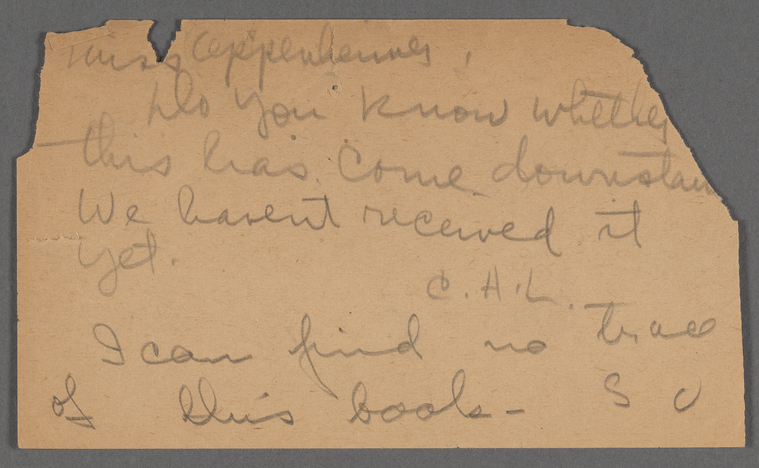 Miss Oppenheimer,
Do you know whether
this has come downstairs
We havent received it
yet.
C.H.L.
I can find no trace
of this book - S O